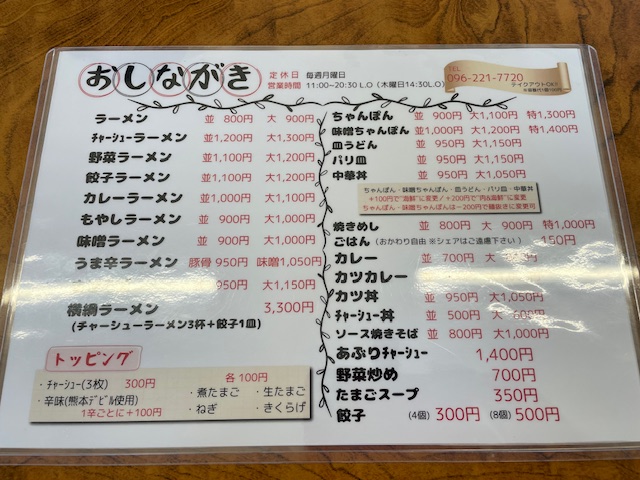 おしながき
定休日 毎週月曜日
営業時間 11:00~20:30 L.O (木曜日14:30L.O)
TEL
096-221-7720
テイクアウトOK!
ラーメン 並 800円 大 900円
チャーシューラーメン 並1,200円 大1,300円
野菜ラーメン 並1,100円 大1,200円
餃子ラーメン 並1,100円 大1,200円
カレーラーメン 並1,000円 大1,100円
もやしラーメン 並 900円 大1,000円
味噌ラーメン 並 900円 大1,000円
うま辛ラーメン 豚骨 950円 味噌1,050円
950円 大1,150円
横綱ラーメン 3,300円
(チャーシューラーメン3杯+餃子1皿)
トッピング
・チャーシュー(3枚) 300円
・辛味(熊本デビル使用)
1辛ごとに+100円
各100円
・煮たまご ・生たまご
・ねぎ ・きくらげ
ちゃんぽん 並 900円 大1,100円 特1,300円
味噌ちゃんぽん 並1,000円 大1,200円 特1,400円
皿うどん 並 950円 大1,150円
パリ皿 並 950円 大1,150円
中華丼 並 950円 大1,050円
ちゃんぽん・味噌ちゃんぽん・皿うどん・パリ皿・中華丼
+100円で"海鮮"に変更/+200円で"肉&海鮮"に変更
ちゃんぽん・味噌ちゃんぽんは-200円で麺抜きに変更可
焼きめし 並 800円 大 900円 特1,000円
ごはん (おかわり自由 ※シェアはご遠慮下さい) 150円
カレー 並 700円 大
カツカレー 並
カツ丼 並 950円 大1,050円
チャーシュー丼 並 500円 大 600円
ソース焼きそば 並 800円 大1,000円
あぶりチャーシュー 1,400円
野菜炒め 700円
たまごスープ 350円
餃子 (4個) 300円 (8個) 500円